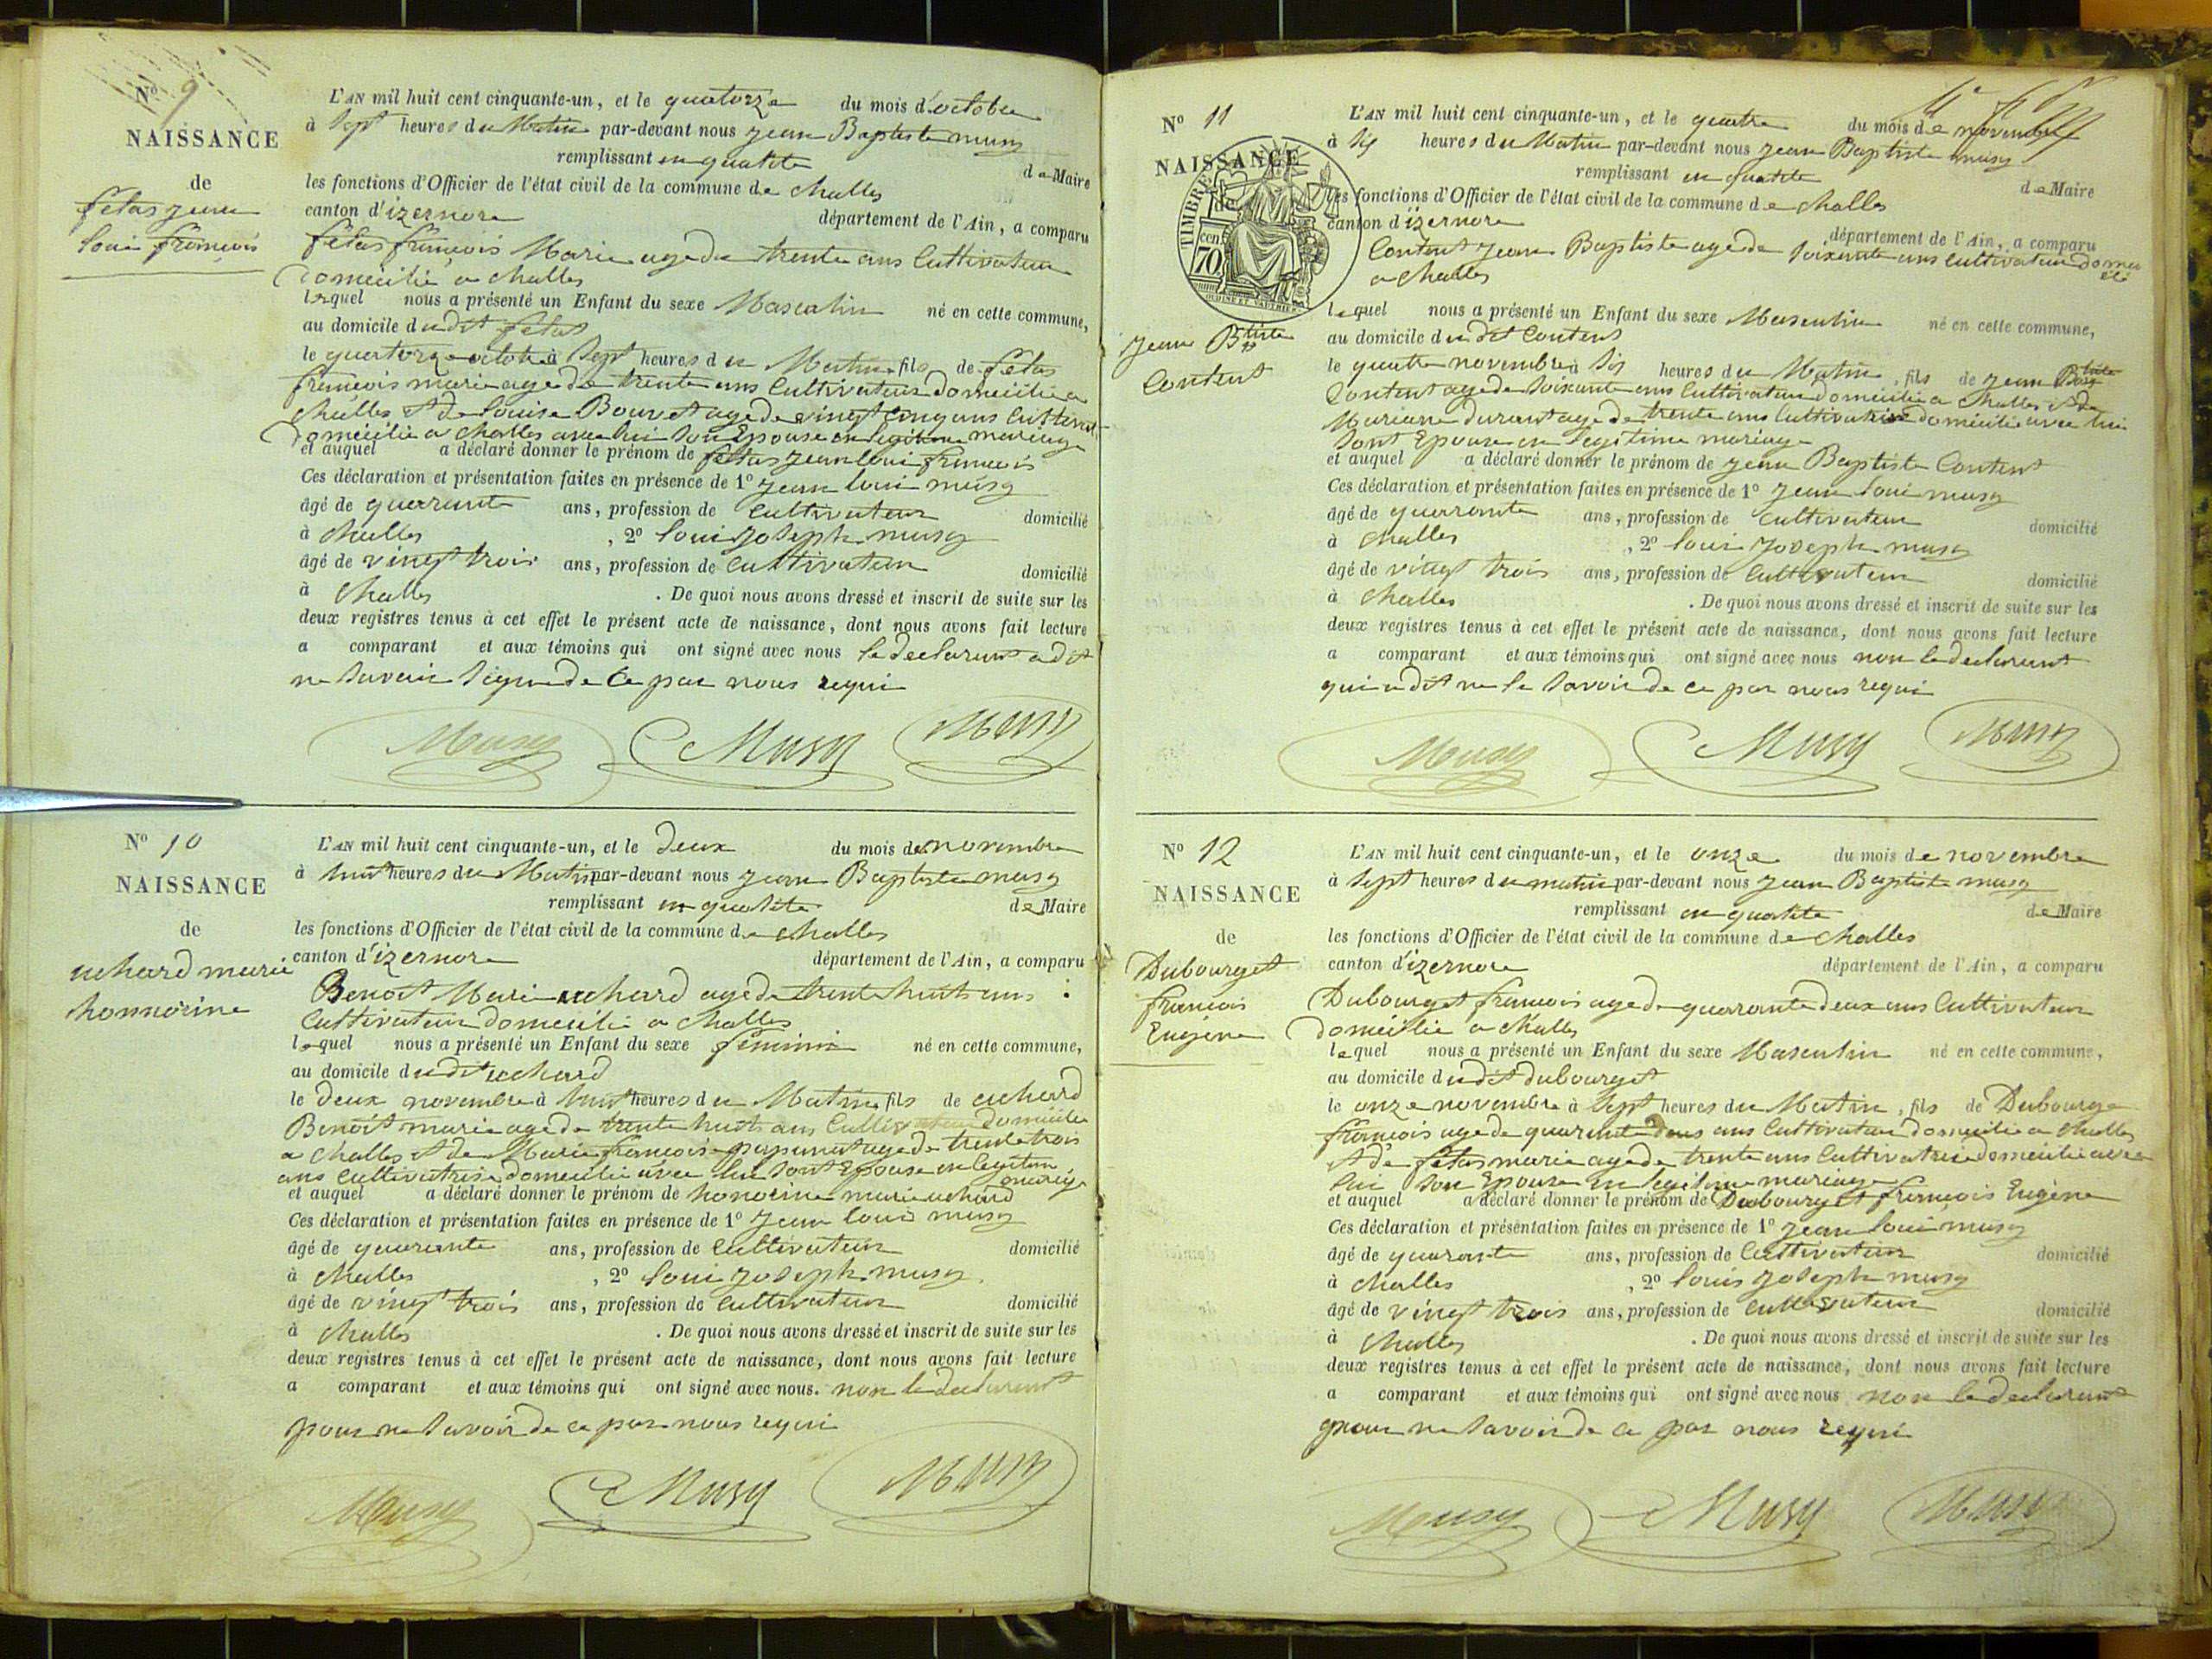 Nº 9
NAISSANCE
de
fétas jean
loui françois
L'AN mil huit cent cinquante-un, et le quatorze du mois d'octobre
à sept heures du Matin par-devant nous jean Baptiste musy
remplissant en qualité de Maire
les fonctions d'Officier de l'état civil de la commune de challes
canton d'izernore département de l'Ain, a comparu
fétas françois Marie agé de trente ans Cultivateur
domicilié a challes
lequel nous a présenté un Enfant du sexe Masculin né en cette commune,
au domicile dudit fétas
le quatorze octobre à sept heures du Matin fils de fétas
françois marie agé de trente ans Cultivateur domicilié a
challes et de louise Bouvet agé de vingt cinq ans Cultivat
domicilié a challes avec lui son Epouse en legitime mariage
et auquel a déclaré donner le prénom de fétas jean loui francois
Ces déclaration et présentation faites en présence de 1º jean loui musy
âgé de quarrante ans, profession de Cultivateur domicilié
à challes , 2º loui joseph musy
âgé de vingt trois ans, profession de Cultivateur domicilié
à challes . De quoi nous avons dressé et inscrit de suite sur les
deux registres tenus à cet effet le présent acte de naissance, dont nous avons fait lecture
a comparant et aux témoins qui ont signé avec nous le declarant a dit
ne savoir signe de ce par nous requi
Musy Musy Musy
Nº 10
NAISSANCE
de
uchard marie
honnorine
L'AN mil huit cent cinquante-un, et le deux du mois de novembre
à huit heures du Matin par-devant nous jean Baptiste musy
remplissant en qualité de Maire
les fonctions d'Officier de l'état civil de la commune de challes
canton d'izernore département de l'Ain, a comparu
Benoit Marie uchard agé de trente huit ans
Cultivateur domicilié a challes
lequel nous a présenté un Enfant du sexe féminin né en cette commune,
au domicile dudit uchard
le deux novembre à huit heures du Matin fils de uchard
Benoit marie agé de trente huit ans Cultivateur domicilié
a challes et de Marie françoise agé de trente trois
ans Cultivatrise domicilié avec lui sont Epouse en legitim mariage
et auquel a déclaré donner le prénom de honorine marie uchard
Ces déclaration et présentation faites en présence de 1º jean louis musy
âgé de quarrante ans, profession de Cultivateur domicilié
à challes , 2º loui joseph musy
âgé de vingt trois ans, profession de Cultivateur domicilié
à challes . De quoi nous avons dressé et inscrit de suite sur les
deux registres tenus à cet effet le présent acte de naissance, dont nous avons fait lecture
a comparant et aux témoins qui ont signé avec nous. non le declarant
pour ne savoir de ce par nous requi
Musy Musy Musy
Nº 11
NAISSANCE
de
TIMBRE
cen
70
OUDINE ET VAUTHIER
jean Btiste
Content
L'AN mil huit cent cinquante-un, et le quatre du mois de novembre
à six heures du Matin par-devant nous jean Baptiste musy
remplissant en qualité de Maire
les fonctions d'Officier de l'état civil de la commune de challes
canton d'izernore département de l'Ain, a comparu
Content jean Baptiste agé de soixante ans cultivateur domicilié
a challes
lequel nous a présenté un Enfant du sexe Masculin né en cette commune,
au domicile dudit Content
le quatre novembre à six heures du Matin, fils de jean Btiste
Content agé de soixante ans Cultivateur domicilié a challes et de
Mariane durant agé de trente ans Cultivatrise domicilié avec lui
sont Epouse en legitime mariage
et auquel a déclaré donner le prénom de jean Baptiste Content
Ces déclaration et présentation faites en présence de 1º jean loui musy
âgé de quarrante ans, profession de Cultivateur domicilié
à challes , 2º loui joseph musy
âgé de vingt trois ans, profession de Cultivateur domicilié
à challes . De quoi nous avons dressé et inscrit de suite sur les
deux registres tenus à cet effet le présent acte de naissance, dont nous avons fait lecture
a comparant et aux témoins qui ont signé avec nous non le declarant
qui a dit ne le savoir de ce par nous requi
Musy Musy Musy
Nº 12
NAISSANCE
de
Dubourget
francois
Eugène
L'AN mil huit cent cinquante-un, et le onze du mois de novembre
à sept heures du matin par-devant nous jean Baptiste musy
remplissant en qualité de Maire
les fonctions d'Officier de l'état civil de la commune de challes
canton d'izernore département de l'Ain, a comparu
Dubourget francois agé de quarante deux ans Cultivateur
domicilié a challes
lequel nous a présenté un Enfant du sexe Masculin né en cette commune,
au domicile dudit dubourget
le onze novembre à sept heures du Matin, fils de Dubourge
françois agé de quarante deux ans Cultivateur domicilié a challes
et de fétas marie agé de trente ans Cultivatrice domicilié avec
lui son Epouse En legitime mariage
et auquel a déclaré donner le prénom de Dubourget françois Eugène
Ces déclaration et présentation faites en présence de 1º jean loui musy
âgé de quarante ans, profession de Cultivateur domicilié
à challes , 2º louis joseph musy
âgé de vingt trois ans, profession de Cultivateur domicilié
à challes . De quoi nous avons dressé et inscrit de suite sur les
deux registres tenus à cet effet le présent acte de naissance, dont nous avons fait lecture
a comparant et aux témoins qui ont signé avec nous non le declarant
pour ne savoir de ce par nous requi
Musy Musy Musy